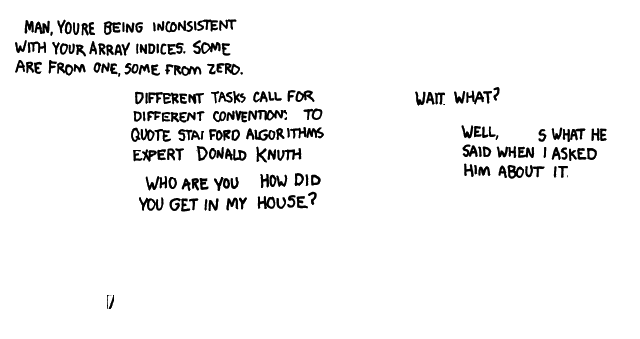 MAN, YOURE BEING INCONSISTENT
WITH YOUR ARRAY INDICES. SOME
ARE FROM ONE, SOME FROM ZERO.
DIFFERENT TASKS CALL FOR
DIFFERENT CONVENTIONS. TO
QUOTE STA FORD ALGORITHMS
EXPERT DONALD KNUTH
WHO ARE YOU HOW DID
YOU GET IN MY HOUSE?
WAIT. WHAT?
WELL, S WHAT HE
SAID WHEN I ASKED
HIM ABOUT IT.